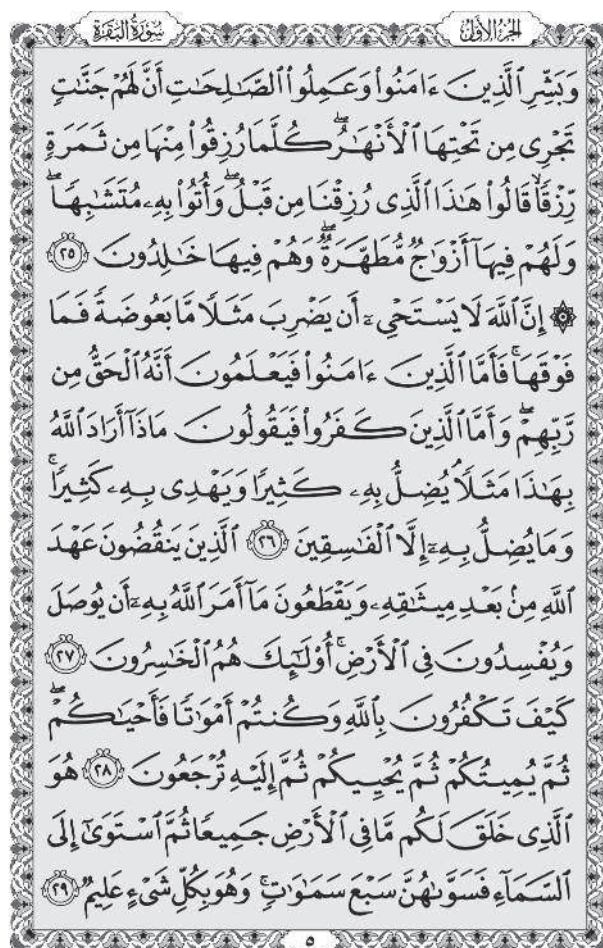 الجزء الأول سورة البقرة
وَبَشِّرِ ٱلَّذِينَ ءَامَنُوا۟ وَعَمِلُوا۟ ٱلصَّٰلِحَٰتِ أَنَّ لَهُمْ جَنَّٰتٍ
تَجْرِى مِن تَحْتِهَا ٱلْأَنْهَٰرُ ۖ كُلَّمَا رُزِقُوا۟ مِنْهَا مِن ثَمَرَةٍ
رِّزْقًا ۙ قَالُوا۟ هَٰذَا ٱلَّذِى رُزِقْنَا مِن قَبْلُ ۖ وَأُتُوا۟ بِهِۦ مُتَشَٰبِهًا ۖ
وَلَهُمْ فِيهَآ أَزْوَٰجٌ مُّطَهَّرَةٌ ۖ وَهُمْ فِيهَا خَٰلِدُونَ ٢٥
۞ إِنَّ ٱللَّهَ لَا يَسْتَحْىِۦٓ أَن يَضْرِبَ مَثَلًا مَّا بَعُوضَةً فَمَا
فَوْقَهَا ۚ فَأَمَّا ٱلَّذِينَ ءَامَنُوا۟ فَيَعْلَمُونَ أَنَّهُ ٱلْحَقُّ مِن
رَّبِّهِمْ ۖ وَأَمَّا ٱلَّذِينَ كَفَرُوا۟ فَيَقُولُونَ مَاذَآ أَرَادَ ٱللَّهُ
بِهَٰذَا مَثَلًا ۘ يُضِلُّ بِهِۦ كَثِيرًا وَيَهْدِى بِهِۦ كَثِيرًا ۚ
وَمَا يُضِلُّ بِهِۦٓ إِلَّا ٱلْفَٰسِقِينَ ٢٦ ٱلَّذِينَ يَنقُضُونَ عَهْدَ
ٱللَّهِ مِنۢ بَعْدِ مِيثَٰقِهِۦ وَيَقْطَعُونَ مَآ أَمَرَ ٱللَّهُ بِهِۦٓ أَن يُوصَلَ
وَيُفْسِدُونَ فِى ٱلْأَرْضِ ۚ أُو۟لَٰٓئِكَ هُمُ ٱلْخَٰسِرُونَ ٢٧
كَيْفَ تَكْفُرُونَ بِٱللَّهِ وَكُنتُمْ أَمْوَٰتًا فَأَحْيَٰكُمْ ۖ
ثُمَّ يُمِيتُكُمْ ثُمَّ يُحْيِيكُمْ ثُمَّ إِلَيْهِ تُرْجَعُونَ ٢٨ هُوَ
ٱلَّذِى خَلَقَ لَكُم مَّا فِى ٱلْأَرْضِ جَمِيعًا ثُمَّ ٱسْتَوَىٰٓ إِلَى
ٱلسَّمَآءِ فَسَوَّىٰهُنَّ سَبْعَ سَمَٰوَٰتٍ ۚ وَهُوَ بِكُلِّ شَىْءٍ عَلِيمٌ ٢٩
٥